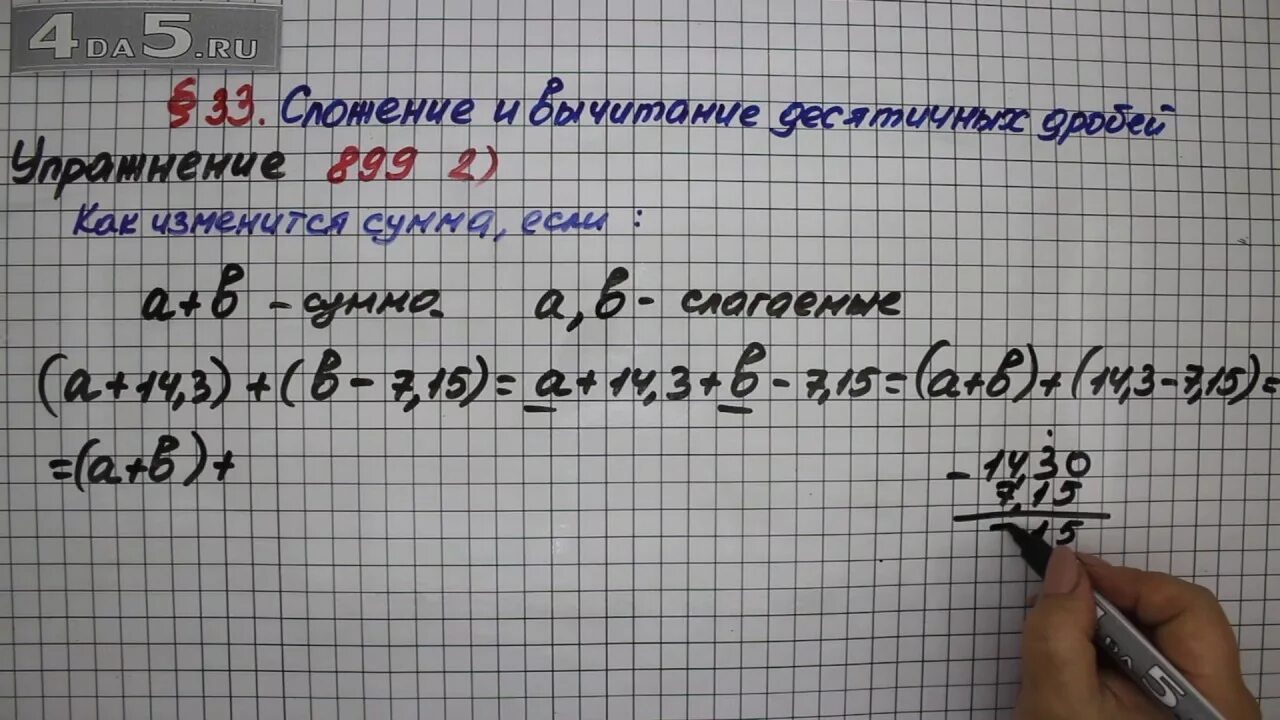 4DA5.RU
§ 33. Сложение и вычитание десятичных дробей
Упражнение 899 2)
Как изменится сумма, если :
a+b - сумма. a, b - слагаемые
(a+14,3)+(b-7,15)=a+14,3+b-7,15=(a+b)+(14,3-7,15)=
=(a+b)+
- 14,30
7,15
15
DA 5